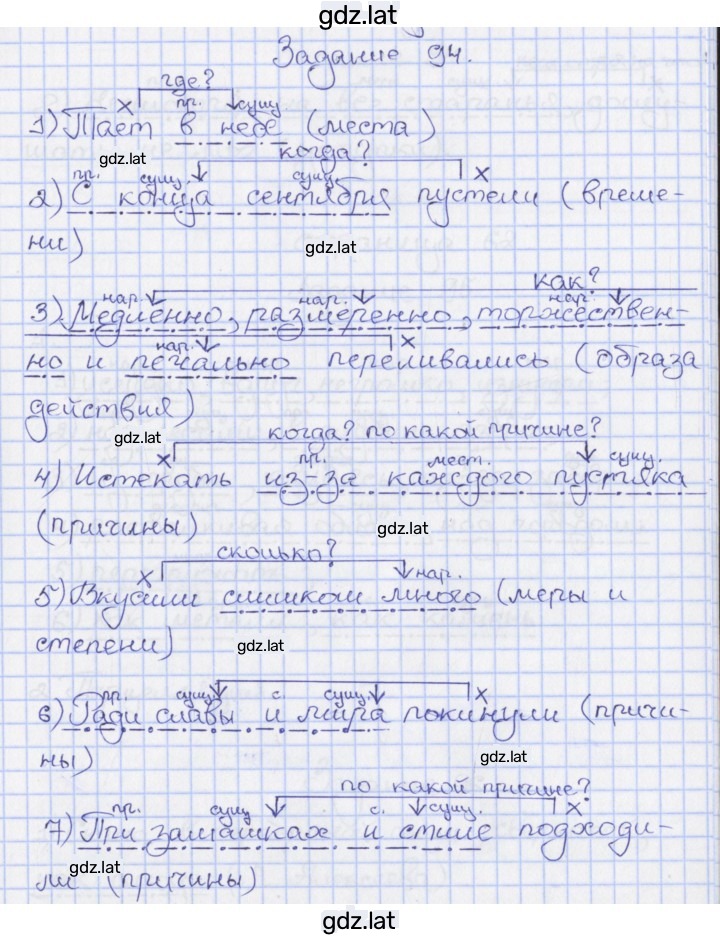 gdz.lat
Задание 94.
где?
х пр. сущ.
1) Тает в небе (места)
gdz.lat
когда?
пр. сущ. сущ. х
2) С конца сентября пустели (време-
ни)
gdz.lat
как?
нар. нар. нар.
3) Медленно, размеренно, торжествен-
нар. х
но и печально переливались (образа
действия)
gdz.lat
когда? по какой причине?
х пр. мест. сущ.
4) Истекать из-за каждого пустяка
(причины)
gdz.lat
сколько?
х нар.
5) Вкусили слишком много (меры и
степени)
gdz.lat
пр. сущ. с. сущ. х
6) Ради славы и мира покинули (причи-
ны)
gdz.lat
по какой причине?
пр. сущ. с. сущ. х
7) При замашках и стиле подходи-
ли (причины)
gdz.lat
gdz.lat